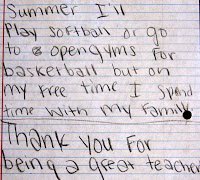 Summer I'll
Play softball or go
to open gyms for
basketball but on
my free time I spend
time with my family
Thank you for
being a great teacher